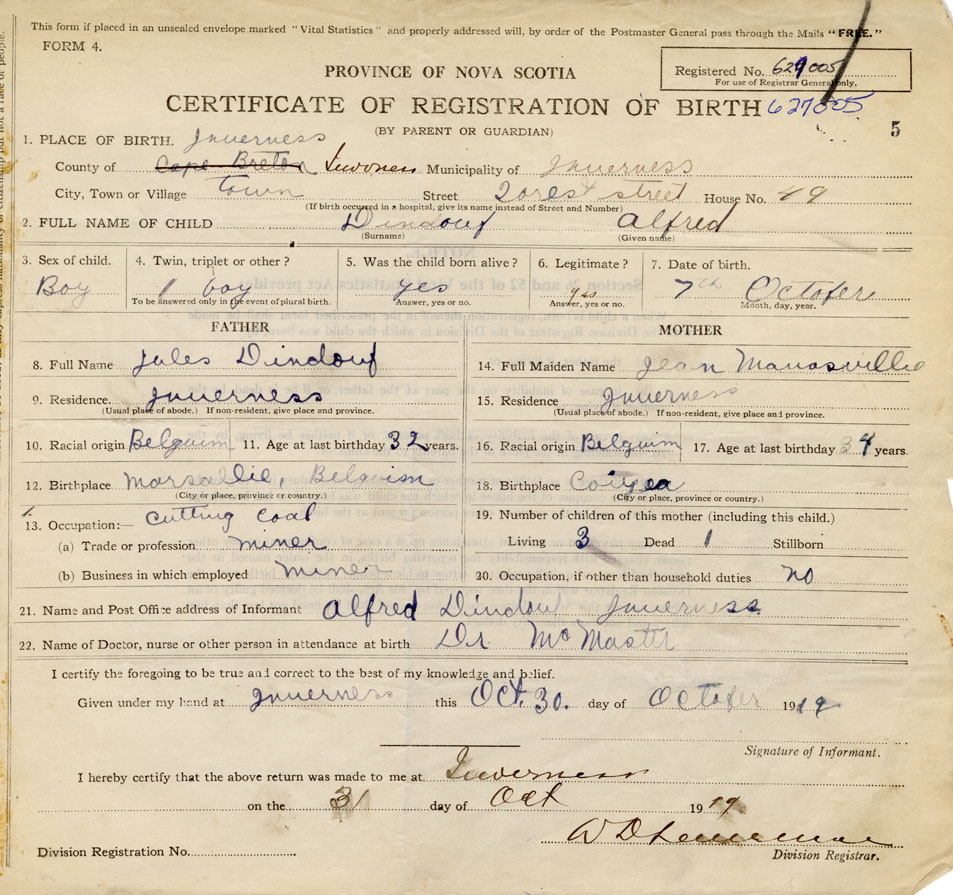 This form if placed in an unsealed envelope marked "Vital Statistics" and properly addressed will, by order of the Postmaster General pass through the Mails "FREE."
FORM 4.
PROVINCE OF NOVA SCOTIA
Registered No. 627005
For use of Registrar General only.
CERTIFICATE OF REGISTRATION OF BIRTH 627005
(BY PARENT OR GUARDIAN)
5
1. PLACE OF BIRTH. Inverness
County of Cape Breton Inverness Municipality of Inverness
City, Town or Village town Street street House No. 49
(If birth occurred in a hospital, give its name instead of Street and Number)
2. FULL NAME OF CHILD Dindouf Alfred
(Surname) (Given name)
3. Sex of child. 4. Twin, triplet or other? 5. Was the child born alive? 6. Legitimate? 7. Date of birth.
Boy 1 boy yes yes 7th Octofer
To be answered only in the event of plural birth. Answer, yes or no. Answer, yes or no. Month, day, year.
FATHER
8. Full Name Jules Dindouf
9. Residence. Inverness
(Usual place of abode.) If non-resident, give place and province.
10. Racial origin Belguim 11. Age at last birthday 32 years.
12. Birthplace Marsallie, Belguim
(City or place, province or country.)
13. Occupation:— Cutting Coal
(a) Trade or profession miner
(b) Business in which employed miner
MOTHER
14. Full Maiden Name Jean Manosvillie
15. Residence Inverness
(Usual place of abode.) If non-resident, give place and province.
16. Racial origin Belguim 17. Age at last birthday 34 years.
18. Birthplace
(City or place, province or country.)
19. Number of children of this mother (including this child.)
Living 3 Dead 1 Stillborn
20. Occupation, if other than household duties no
21. Name and Post Office address of Informant Alfred Dindouf Inverness
22. Name of Doctor, nurse or other person in attendance at birth Dr McMaster
I certify the foregoing to be true and correct to the best of my knowledge and belief.
Given under my hand at Inverness this Oct. 30. day of Octofer 1919
Signature of Informant.
I hereby certify that the above return was made to me at Inverness
on the 31 day of Oct 1919
Division Registration No.
Division Registrar.